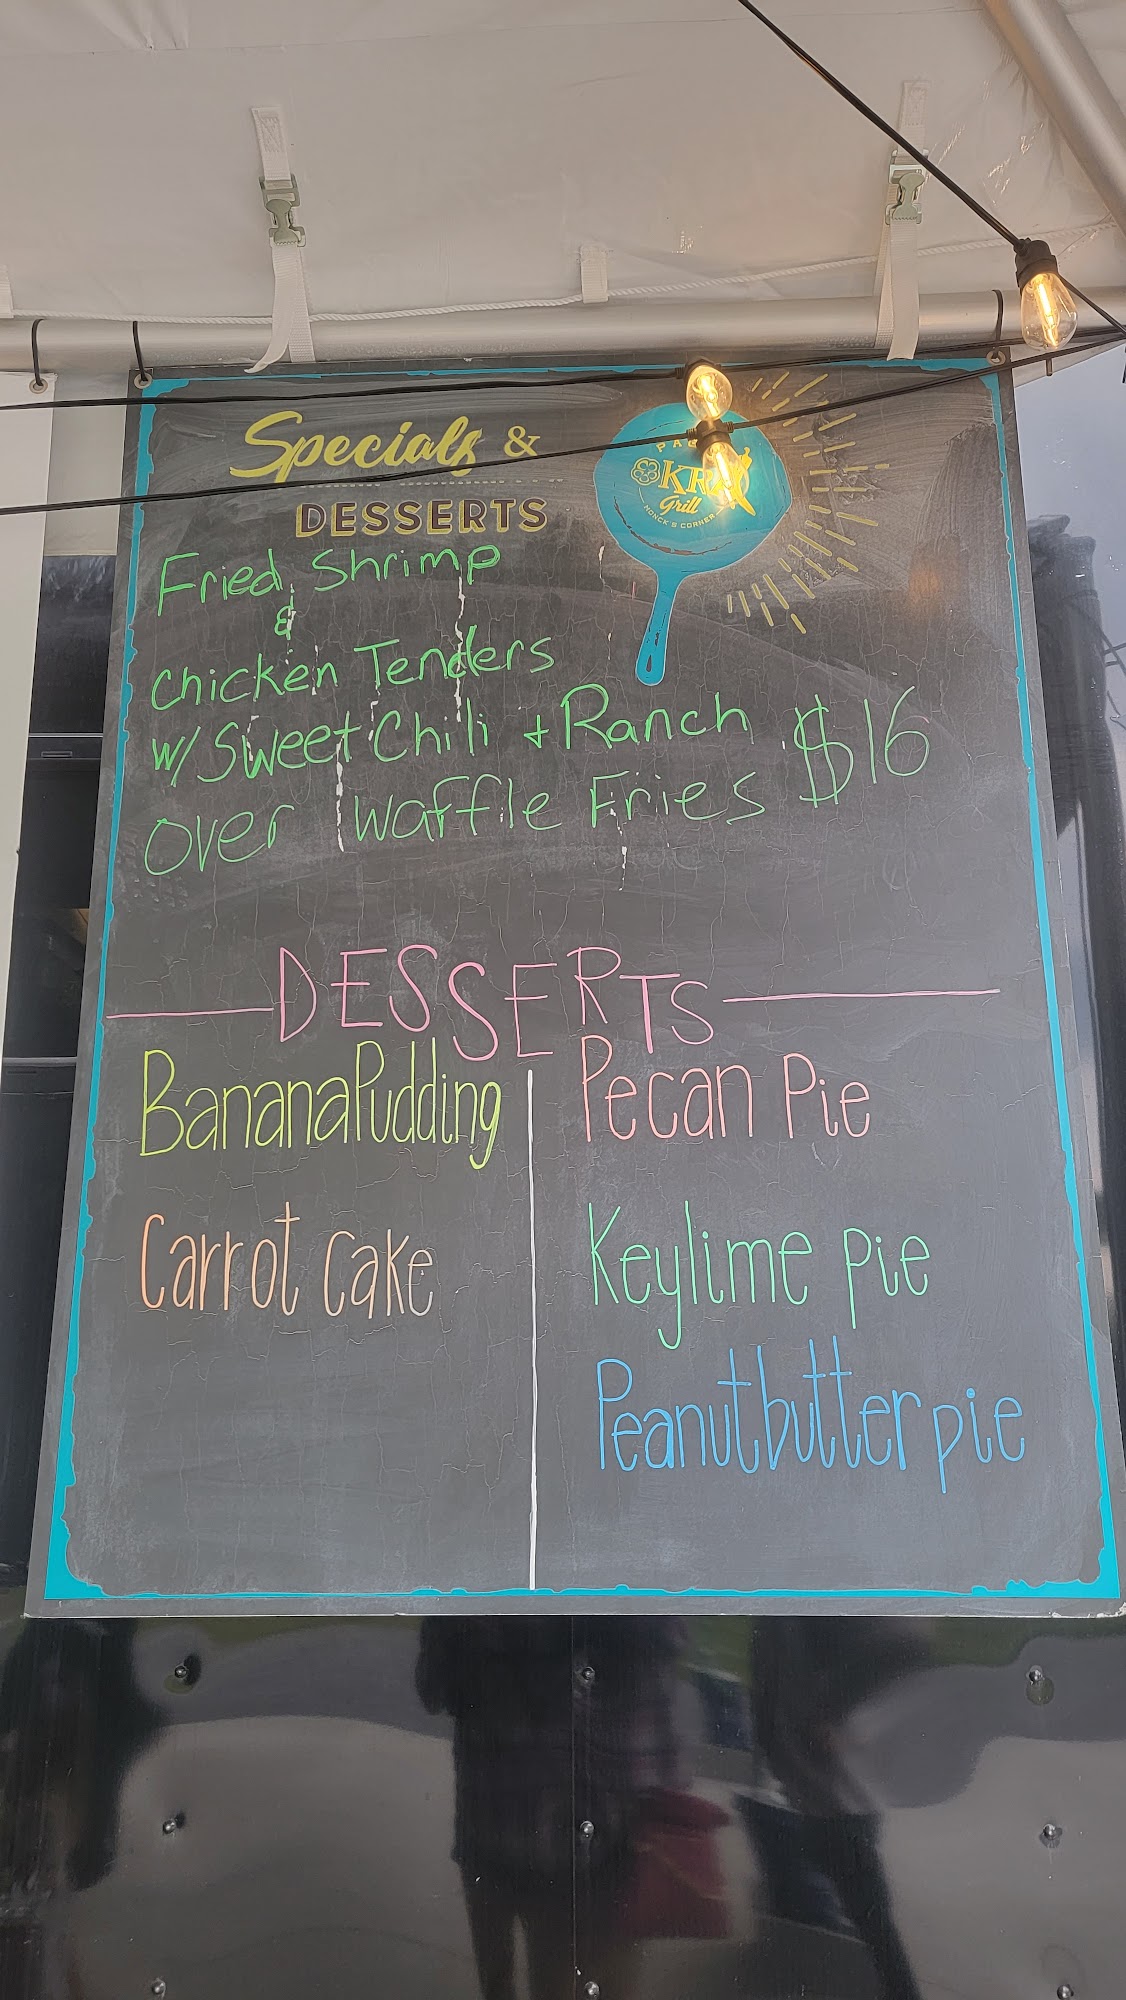 Specials &
DESSERTS
OKRA
Grill
MONCK'S CORNER
Fried Shrimp
&
Chicken Tenders
w/ Sweet Chili + Ranch $16
over Waffle Fries
DESSERTS
Banana Pudding
Carrot Cake
Pecan Pie
Keylime pie
Peanutbutter pie